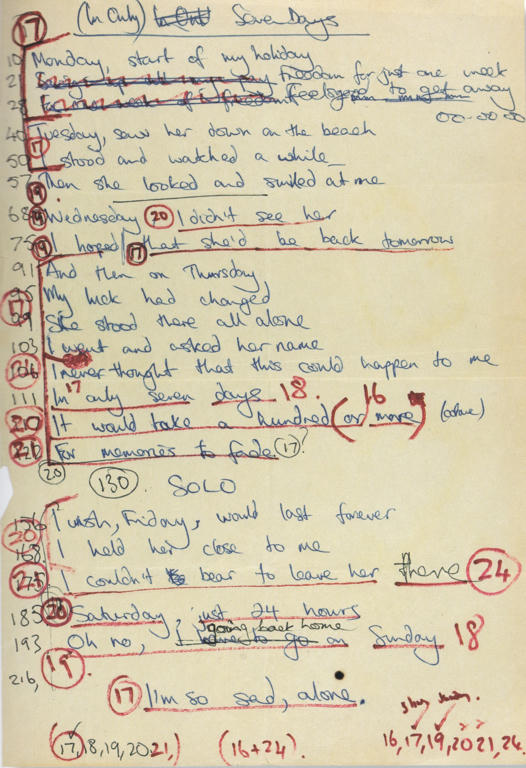 17 (In Only) In Only Seven Days
10 Monday, start of my holiday
21 freedom for just one week
28 Feels good to get away
00-00-00
40 Tuesday, saw her down on the beach
17
50 I stood and watched a while
57 19 Then she looked and smiled at me
68 19 Wednesday 20 I didn't see her
75 19 I hoped 17 that she'd be back tomorrow
91 And then on Thursday
95 My luck had changed
17
99 She stood there all alone
103 I went and asked her name
106 I never thought that this could happen to me
111 In 17 only seven days 18. 16
20 It would take a hundred (or more)
For memories to fade. 17?
20 130. SOLO
156 I wish, Friday, would last forever
20
168 I held her close to me
175 I couldn't bear to leave her there 24
185 20 Saturday just 24 hours
193 Oh no, going back home on Sunday 18
216, 19.
17 I'm so sad, alone.
(17, 18, 19, 20, 21,) (16+24). 16, 17, 19, 20, 21, 24.